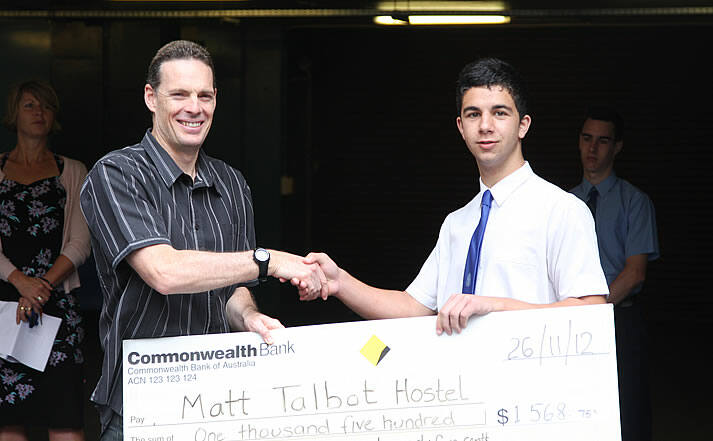 CommonwealthBank
Commonwealth Bank of Australia
ACN 123 123 124
26/11/12
Pay Matt Talbot Hostel
The sum of One thousand five hundred
$1568 75